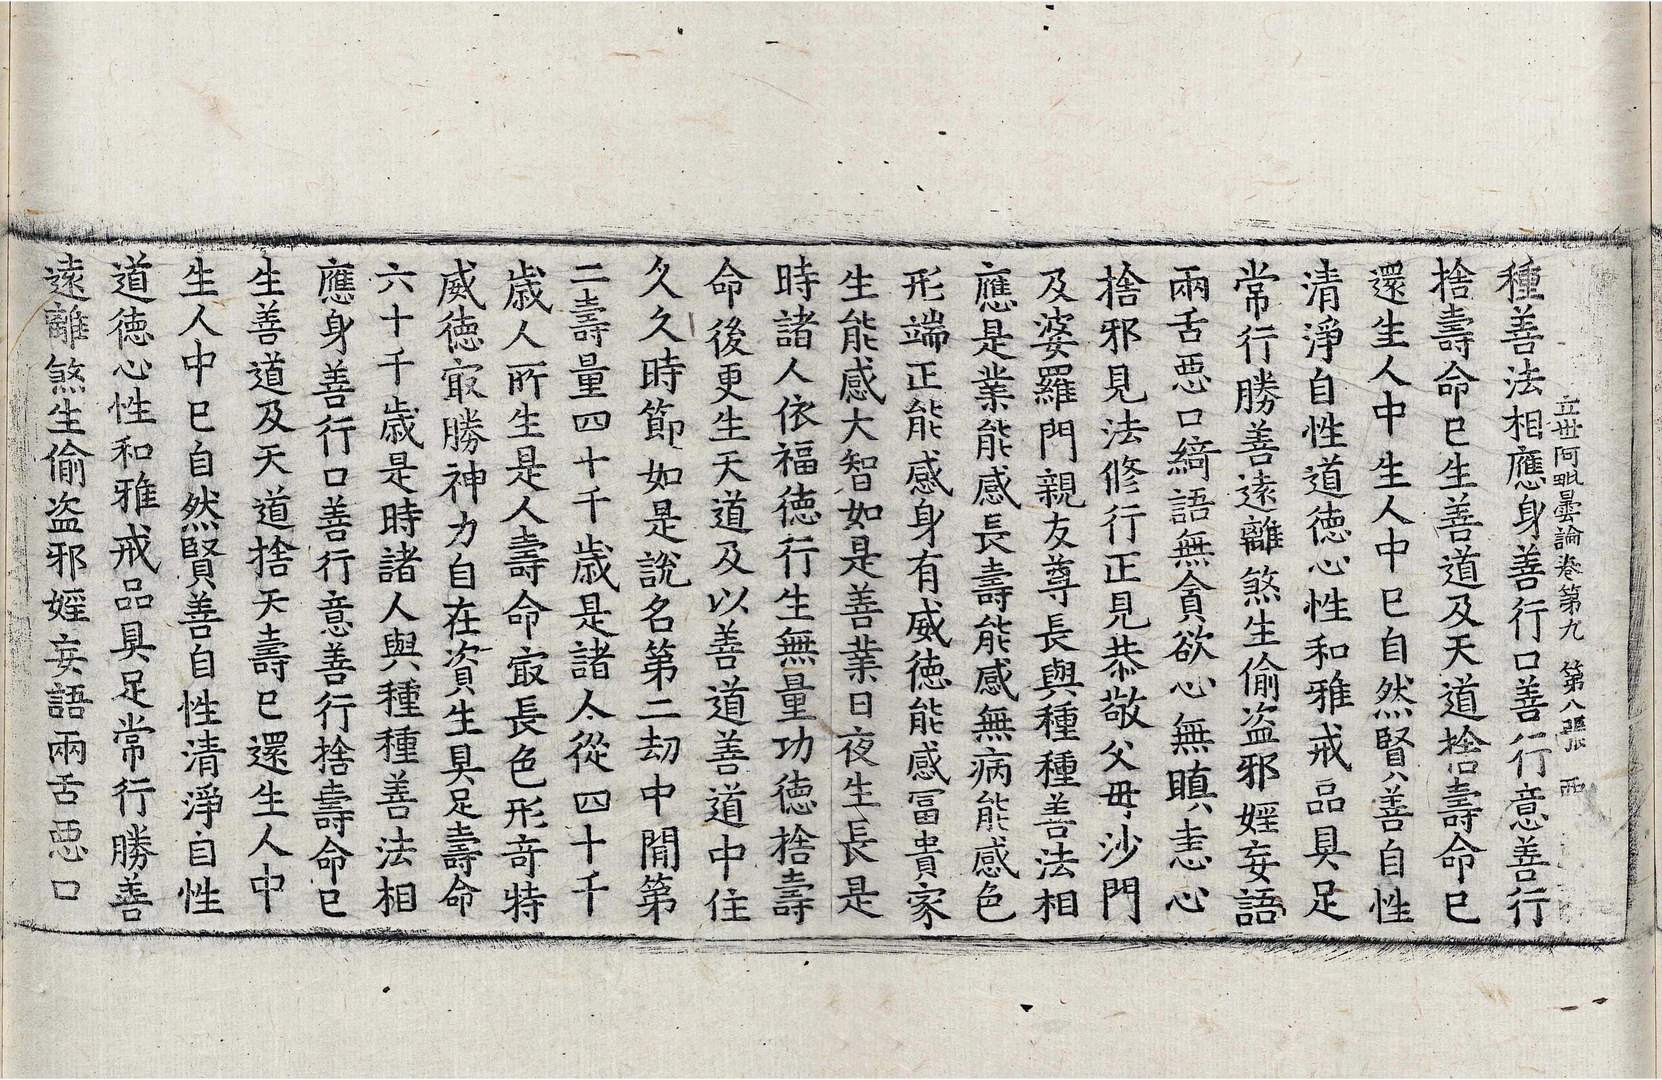 立世阿毗曇論卷第九　第八張　西
種善法相應身善行口善行意善行
捨壽命已生善道及天道捨壽命已
還生人中生人中已自然賢善自性
清淨自性道德心性和雅戒品具足
常行勝善遠離煞生偷盜邪婬妄語
兩舌惡口綺語無貪欲心無瞋恚心
捨邪見法修行正見恭敬父母沙門
及婆羅門親友尊長與種種善法相
應是業能感長壽能感無病能感色
形端正能感身有威德能感冨貴家
生能感大智如是善業日夜生長是
時諸人依福德行生無量功德捨壽
命後更生天道及以善道善道中住
久久時節如是說名第二劫中間第
二壽量四十千歲是諸人從四十千
歲人所生是人壽命㝡長色形奇特
威德㝡勝神力自在資生具足壽命
六十千歲是時諸人與種種善法相
應身善行口善行意善行捨壽命已
生善道及天道捨天壽已還生人中
生人中已自然賢善自性清淨自性
道德心性和雅戒品具足常行勝善
遠離煞生偷盜邪婬妄語兩舌惡口